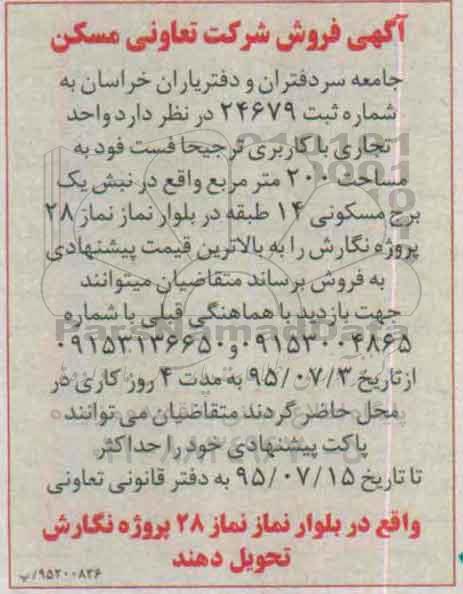 آگهی فروش شرکت تعاونی مسکن
جامعه سردفتران و دفتریاران خراسان به
شماره ثبت ۲۴۶۷۹ در نظر دارد واحد
تجاری با کاربری ترجیحا فست فود به
مساحت ۲۰۰ متر مربع واقع در نبش یک
برج مسکونی ۱۴ طبقه در بلوار نماز نماز ۲۸
پروژه نگارش را به بالاترین قیمت پیشنهادی
به فروش برساند متقاضیان میتوانند
جهت بازدید با هماهنگی قبلی با شماره
۰۹۱۵۳۰۰۴۸۶۵ و ۰۹۱۵۳۱۳۶۶۵۰
از تاریخ ۹۵/۰۷/۳ به مدت ۴ روز کاری در
محل حاضر گردند متقاضیان می توانند
پاکت پیشنهادی خود را حداکثر
تا تاریخ ۹۵/۰۷/۱۵ به دفتر قانونی تعاونی
واقع در بلوار نماز نماز ۲۸ پروژه نگارش
تحویل دهند
۹۵۲۰۰۸۲۶/پ
ParsNamadData